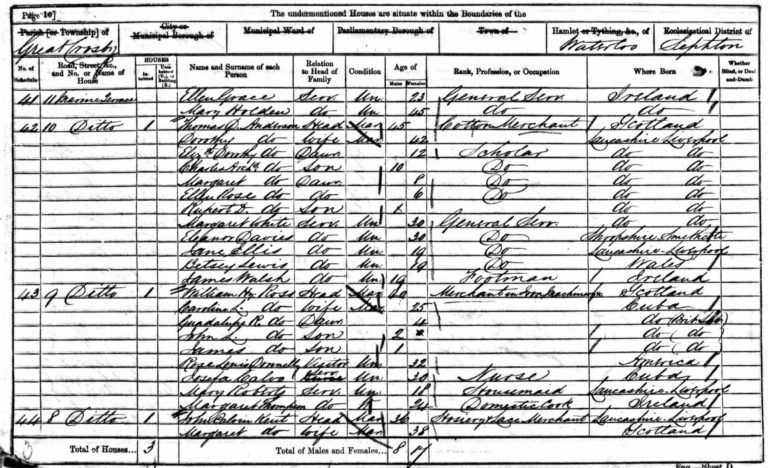 Page 10] The undermentioned Houses are situate within the Boundaries of the
Parish [or Township] of City or Municipal Borough of Municipal Ward of Parliamentary Borough of Town of Hamlet or Tything, &c., of Ecclesiastical District of
Great Crosby Waterloo Sephton
No. of Schedule Road, Street, &c., and No. or Name of House HOUSES Inhabited Uninhabited (U.), or Building (B.) Name and Surname of each Person Relation to Head of Family Condition Age of Males Females Rank, Profession, or Occupation Where Born Whether Blind, or Deaf-and-Dumb
41 11 Terrace Ellen Grace Serv Un 23 General Serv Ireland
Mary Holden do Un 45 do do
42 10 Ditto 1 Thomas D. Anderson Head Mar 45 Cotton Merchant Scotland
Dorothy do Wife Mar 42 Lancashire Liverpool
Elizth Dorothy do Daur 12 Scholar do do
Charles Archd do Son 10 Do do do
Margaret do Daur 8 Do do do
Ellen Rose do do 6 Do do do
Rupert D. do Son do do
Margaret White Serv Un 30 General Serv do do
Eleanor Davies do Un 30 Do Shropshire
Jane Ellis do Un 19 Do Lancashire Liverpool
Betsey Lewis do Un 19 Do Wales
James Walsh do Un 19 Footman Ireland
43 9 Ditto 1 William Hy Ross Head Mar 49 Merchant in Iron Scotland
Caroline L. do Wife Mar 25 Cuba
Guadalupe R. do Daur 4 do
John L. do Son 2 do do
James do Son 1 do do
Rose Donnelly Visitor Un 32 America
Josefa Calvo Serv Un 30 Nurse Cuba
Mary Roberts Serv Un 18 Housemaid Lancashire Liverpool
Margaret Thompson do 24 Domestic Cook Ireland
44 8 Ditto 1 John Kent Head Mar 36 Hosiery & Lace Merchant Lancashire Liverpool
Margaret do Wife Mar 38 Scotland
3 Total of Houses... 3 Total of Males and Females... 8 17
Eng.—Sheet D.